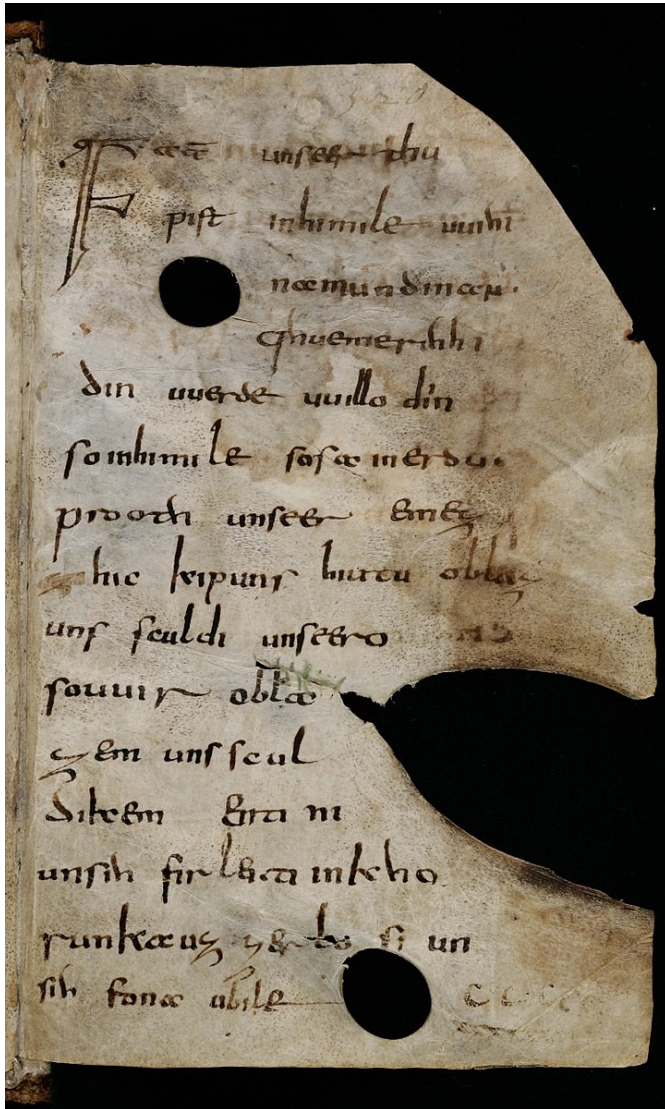 Fater unseer thu
pist in himile uuihi
namun dinan
qhueme rihhi
din uuerde uuillo diin
so in himile sosa in erdu.
prooth unseer emez
zihic kip uns hiutu oblaz
uns sculdi unseero
so uuir obla
zem uns scul
dikem enti ni
unsih firleiti in kho
runka uz zer losi un
sih fona ubile